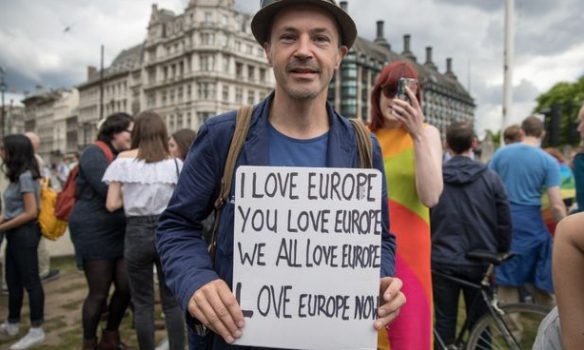 I LOVE EUROPE
YOU LOVE EUROPE
WE ALL LOVE EUROPE
LOVE EUROPE NOW